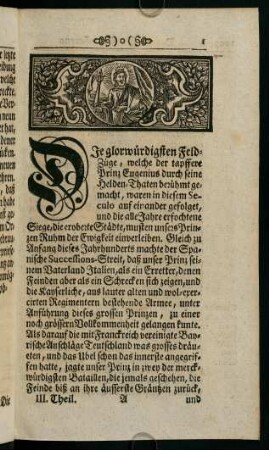 )o(
Die glorwürdigsten Feld-
Züge, welche der tapffere
Prinz Eugenius durch seine
Helden-Thaten berühmt ge-
macht, waren in diesem Se-
culo auf einander gefolget,
und die alle Jahre erfochtene
Siege, die eroberte Städte, musten unsers Prin-
zen Ruhm der Ewigkeit einverleiben. Gleich zu
Anfang dieses Jahrhunderts machte der Spa-
nische Successions-Streit, daß unser Prinz sei-
nem Vaterland Italien, als ein Erretter, denen
Feinden aber als ein Schrecken sich zeigen, und
die Kayserliche, aus lauter alten und wol-exer-
cirten Regimentern bestehende Armee, unter
Anführung dieses grossen Prinzen, zu einer
noch grössern Vollkommenheit gelangen kunte.
Als darauf die mit Franckreich vereinigte Bay-
rische Anschläge Teutschland was grosses dräu-
eten, und das Ubel schon das innerste angegrif-
fen hatte, jagte unser Prinz in zwey der merck-
würdigsten Bataillen, die jemals geschehen, die
Feinde biß an ihre äusserste Gräntzen zurück,
III. Theil. A und